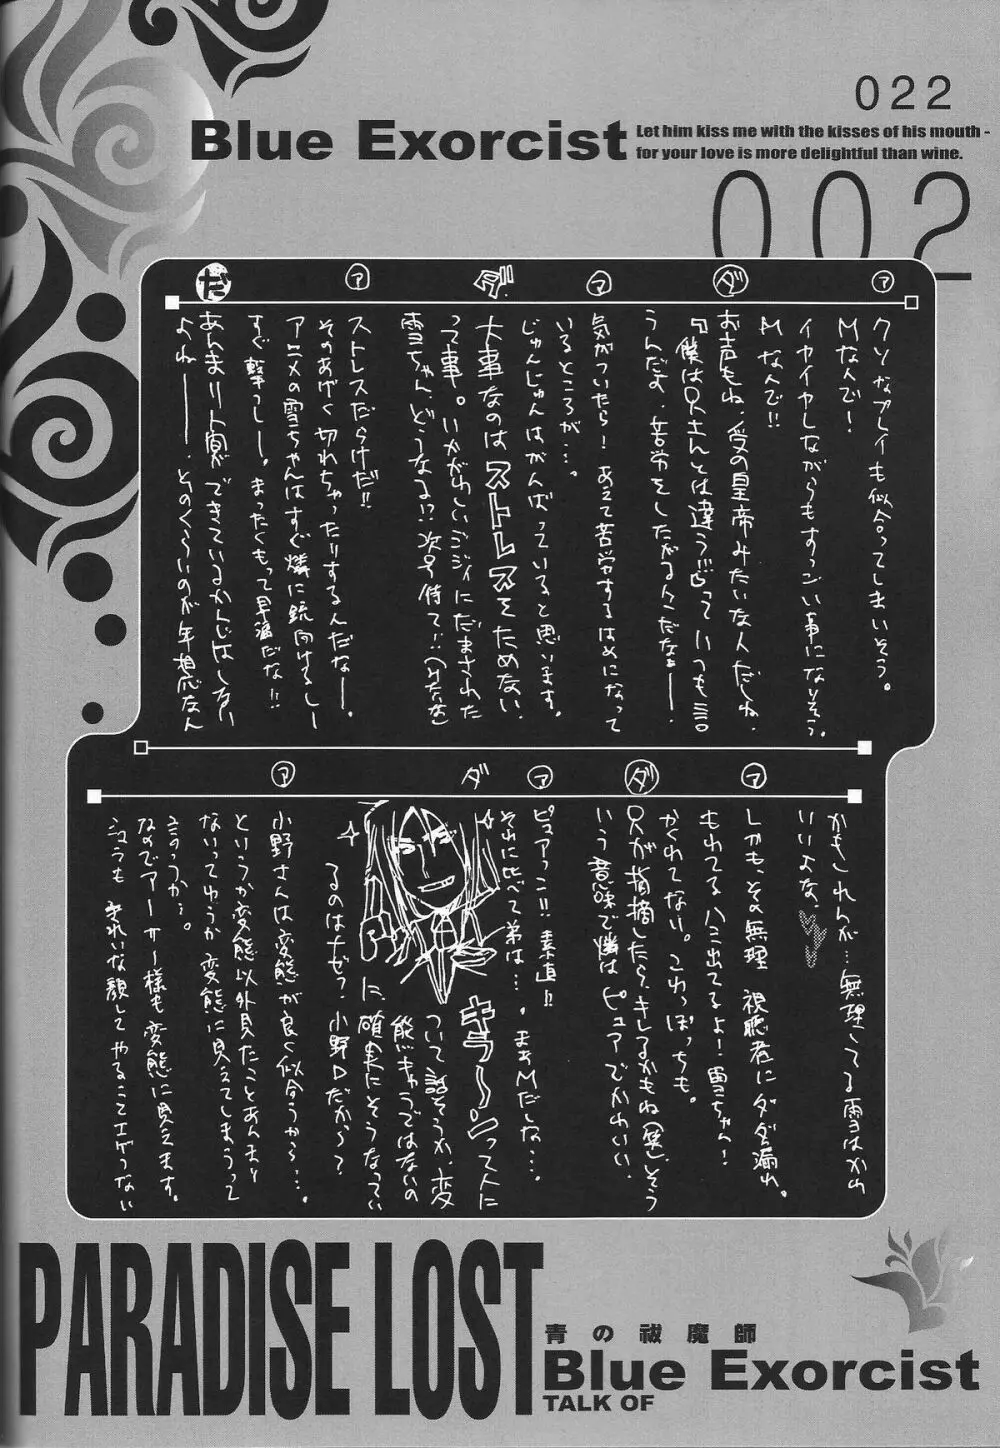 022
Blue Exorcist
Let him kiss me with the kisses of his mouth -
for your love is more delightful than wine.
002
ア
クソなプレイも似合ってしまいそう。
Mなんで!
イヤイヤしながらもすっごい事になりそう。
Mなんで!!
ダ
お声もね、受の皇帝みたいな人だしね、
『僕は兄さんとは違う!!』っていつも言
うんだよ、苦労をしたがる人だなぁー。
マ
気がついたら!あえて苦労するはめになって
いるところが…。
じゅんじゅんはがんばっていると思います。
ダ
大事なのはストレスをためない、
って事。いかがわしいジジイにだまされた
雪ちゃん、どうなる!?次号待て!!
ア
ストレスだらけだ!!
そのあげく切れちゃったりするんだなー。
アニメの雪ちゃんはすぐ燐に銃向けるしー
すぐ撃つしー。まったくもって早漏だな!!
だ
あんまりト寡ができているかんじはしない
よねーー、そのくらいのが年相応なん
かもしれんが…無理してる雪はかわ
いいよな、
マ
しかも、その無理 視聴者にダダ漏れ。
もれてるハミ出てるよ!雪ちゃん!
かくれてない。これっぽっちも。
ダ
兄が指摘したら、キレるかもね(笑)そう
いう意味で燐はピュアでかわいい
ア
ピュアっこ!!素直!!
それに比べて弟は…。まあMだしな…。
ダ
キラーンって人に
ついて話そうか、変
態キャラではないの
に、確実にそうなってい
るのはなぜ?小野Dだから〜?
ア
小野さんは変態が良く似合うから…。
というか変態以外見たことあんまり
ないってゆうか変態に見えてしまうって
言うか…。
なのでアーサー様も変態に見えます。
しかも きれいな顔してやることエゲつない
PARADISE LOST
青の祓魔師
Blue Exorcist
TALK OF